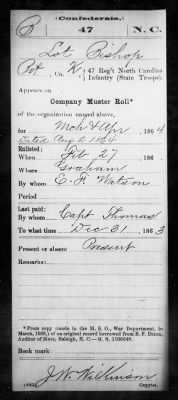 (Confederate.)
B 47 N.C.
Lot Bishop
Pvt, Co. K, 47 Reg't North Carolina
Infantry (State Troops).
Appears on
Company Muster Roll*
of the organization named above,
for Mch & Apr, 1864
Dated Aug 2 1864
Enlisted:
When Feb 27, 186
Where Graham
By whom E. H. Watson
Period
Last paid:
By whom Capt Thomas
To what time Dec 31, 1863
Present or absent Present
Remarks:
*From copy made in the M. S. O., War Department, in
March, 1905, of an original record borrowed from B. F. Dixon,
Auditor of State, Raleigh, N. C.—M. S.
Book mark:
J. W. Wilkinson
Copyist.